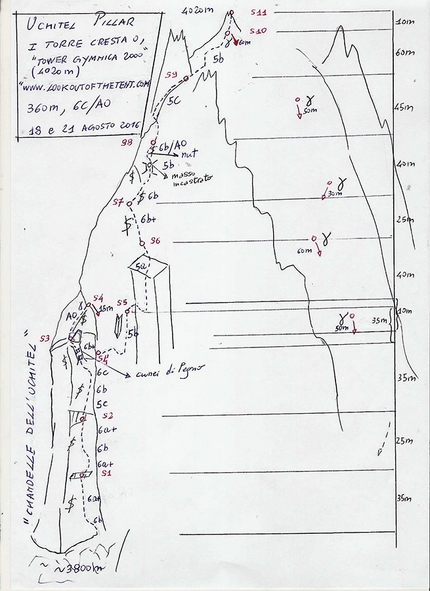 UCHITEL PILLAR
I TORRE CRESTA O,
"TOWER GYMMICA 2000"
(4020m)
"WWW.LOOKOUTOFTHETENT.COM"
360m, 6C/A0
18 e 21 AGOSTO 2016
4020m
S11
S10
6m
5b
S9
5c
S8
6b/A0
nut
5b
masso
incastrato
S7
6b
6b+
S6
5a
S4
15m
S5
A0
S3
5b
6b+
S4'
cunei di legno
6c
6b
5c
S2
6a+
6b
6a+
S1
6a+
6b
"CHANDELLE DELL'UCHITEL"
~3800m
10m
60m
45m
50m
40m
30m
25m
60m
40m
10m
35m
50m
35m
25m
35m